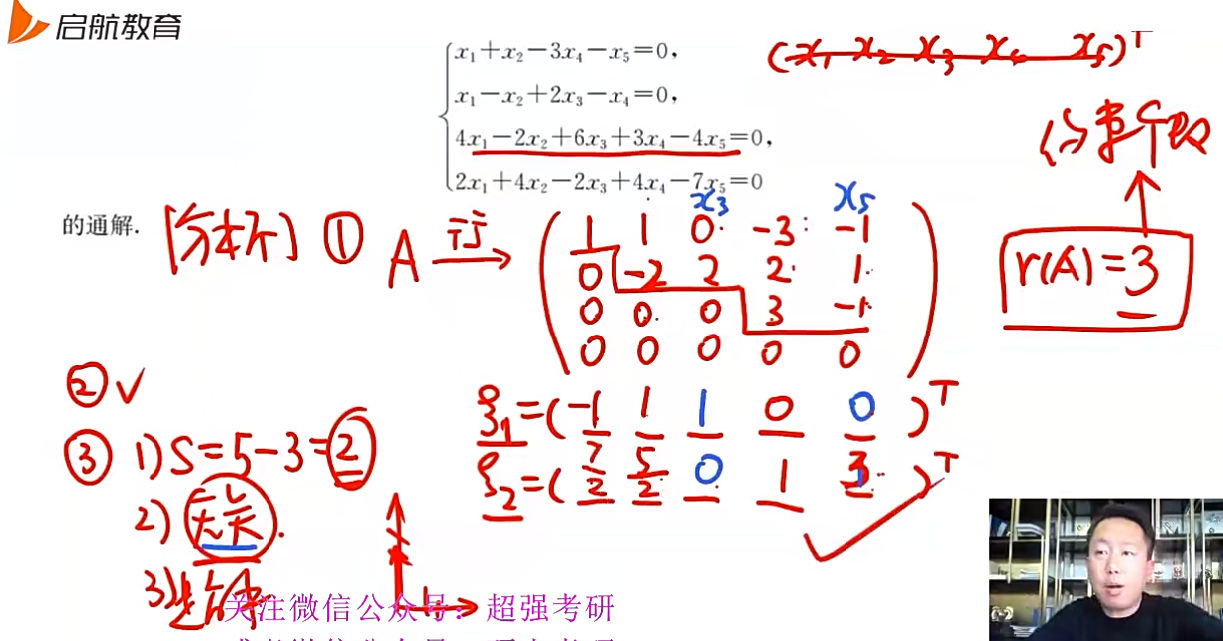 启航教育
x₁+x₂-3x₄-x₅=0,
x₁-x₂+2x₃-x₄=0,
4x₁-2x₂+6x₃+3x₄-4x₅=0,
2x₁+4x₂-2x₃+4x₄-7x₅=0
(x₁ x₂ x₃ x₄ x₅)ᵀ
的通解.
[分析] ① A 行→
x₃ x₅
1 1 0 -3 -1
0 -2 2 2 1
0 0 0 3 -1
0 0 0 0 0
r(A)=3
② ✓
ξ₁=(-1 1 1 0 0)ᵀ
③ 1) S=5-3=2
ξ₂=(7/2 5/2 0 1 3)ᵀ
2) 无关.
3)
关注微信公众号: 超强考研